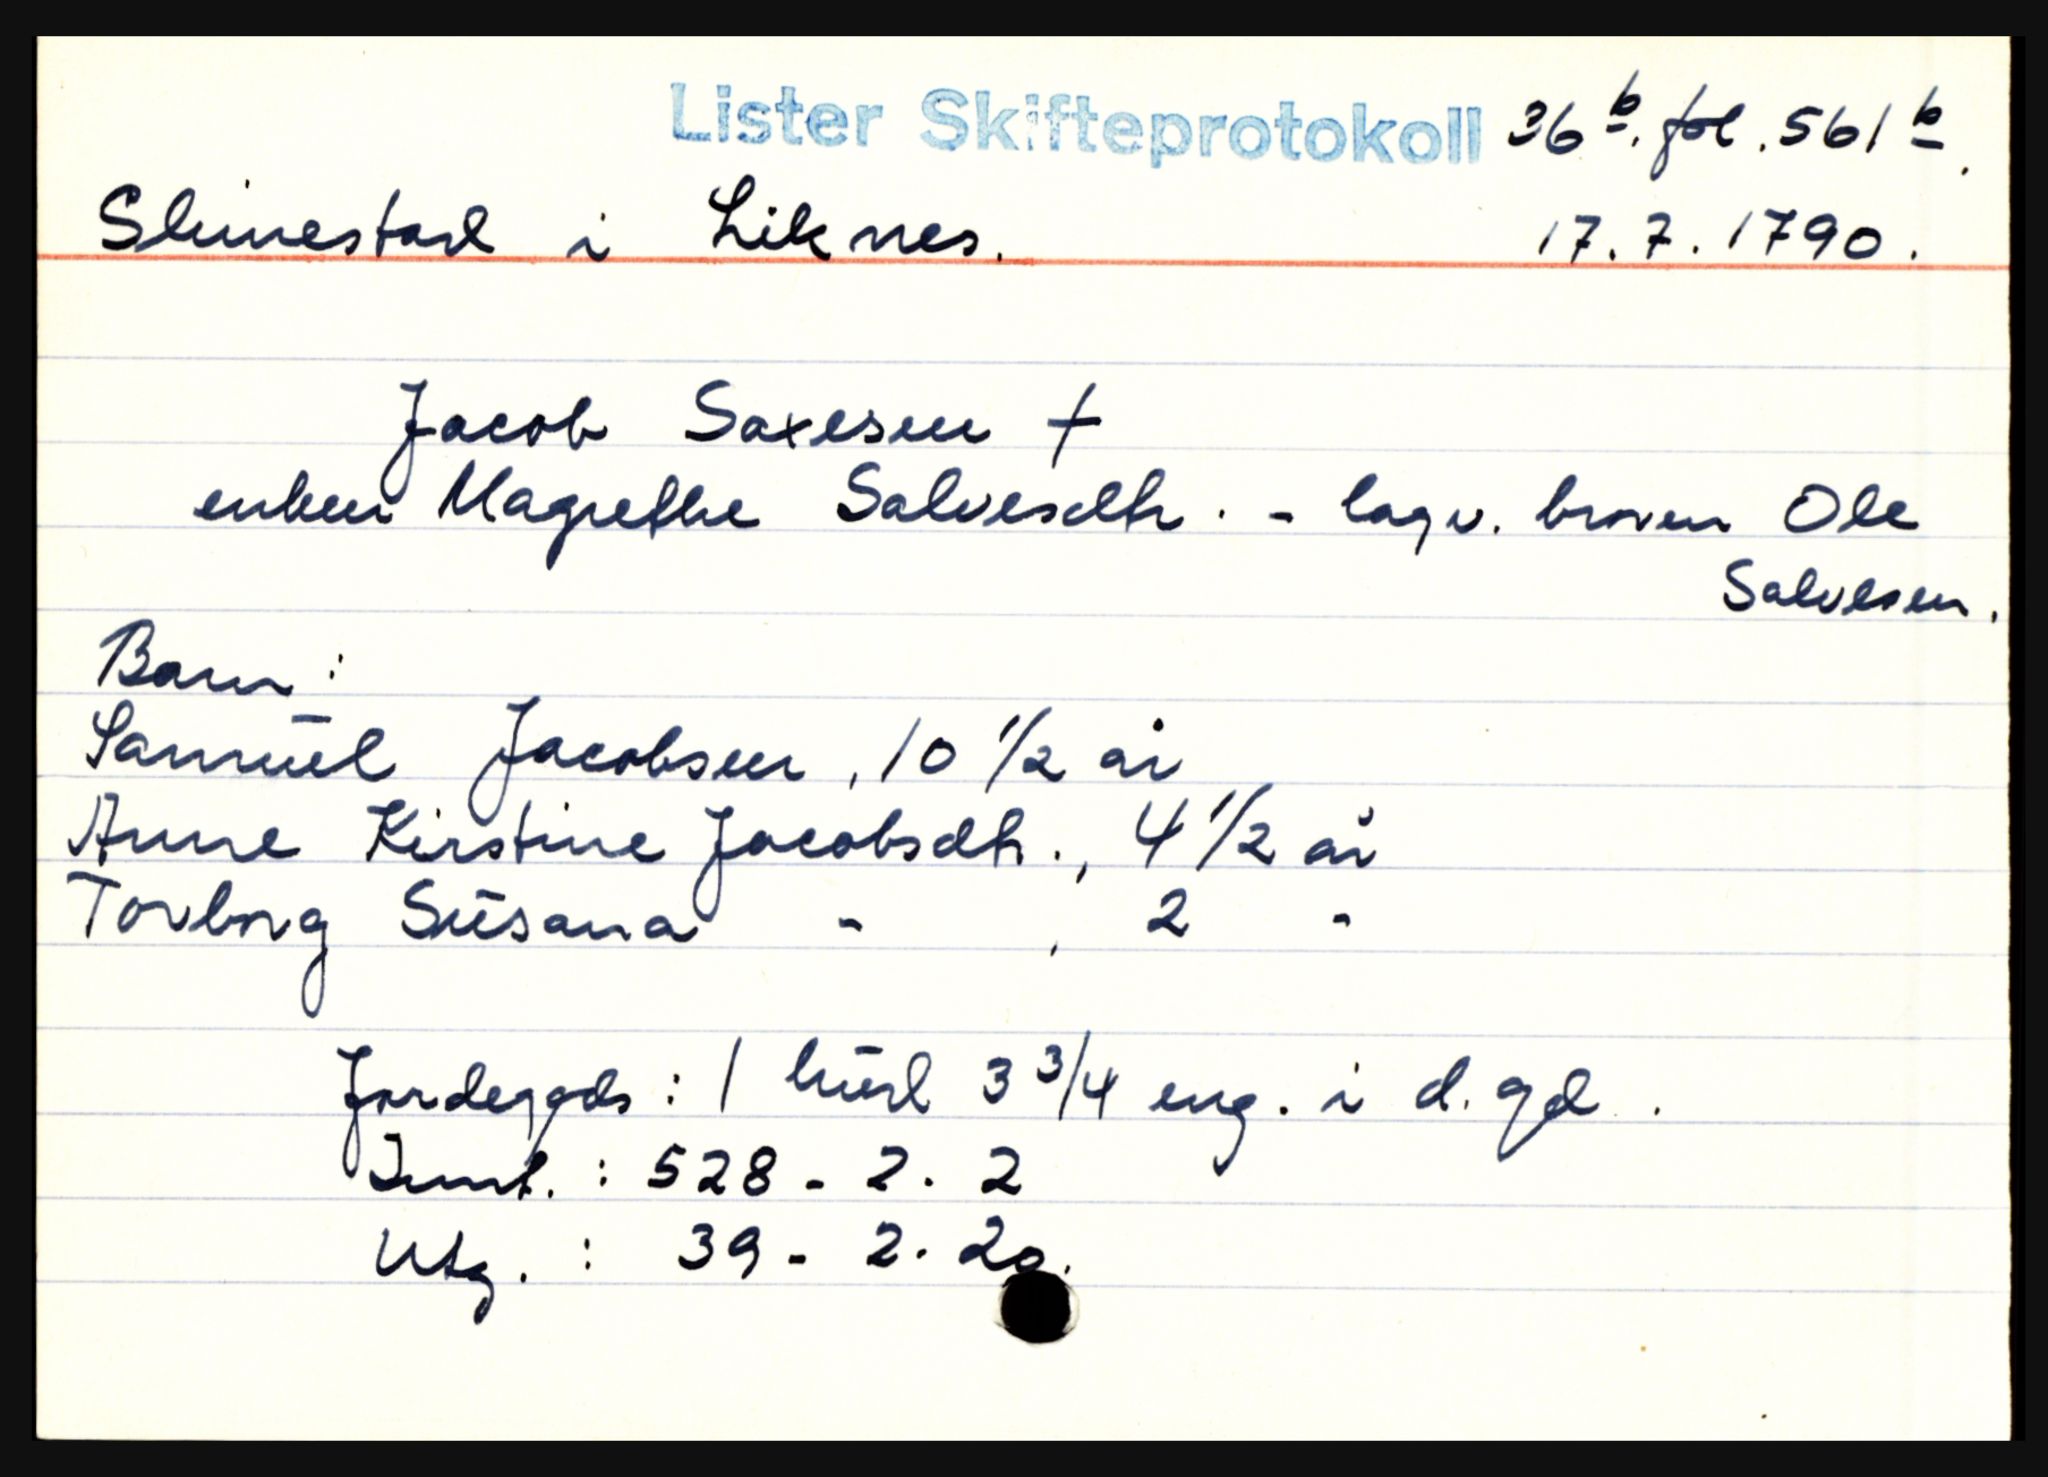 Lister Skifteprotokoll 36 b. fol. 561 b.
Slimestad i Liknes. 17.7.1790.
Jacob Saxesen †
enken Magrethe Salvesdtr. - lagv. broren Ole
Salvesen.
Barn:
Samuel Jacobsen, 10 1/2 år
Anne Kirstine Jacobsdtr., 4 1/2 år
Torborg Susana - , 2 -
Jordegods: 1 hud 3 3/4 eng. i d. gd.
Innt.: 528 - 2. 2
Utg.: 39 - 2. 20.